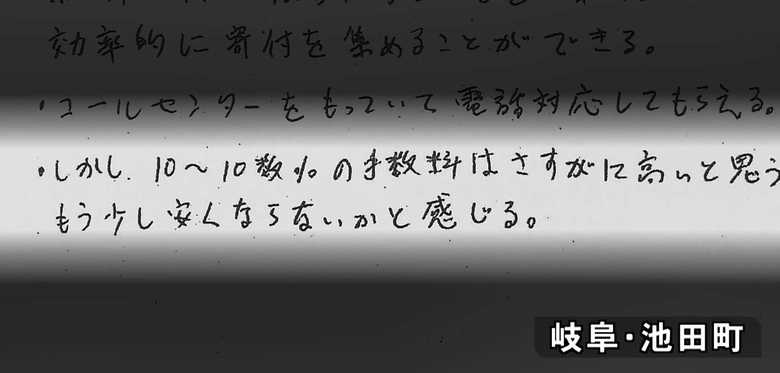 効率的に寄付を集めることができる。
・コールセンターをもっていて電話対応してもらえる。
・しかし、10～10数%の手数料はさすがに高いと思う
もう少し安くならないかと感じる。
岐阜・池田町